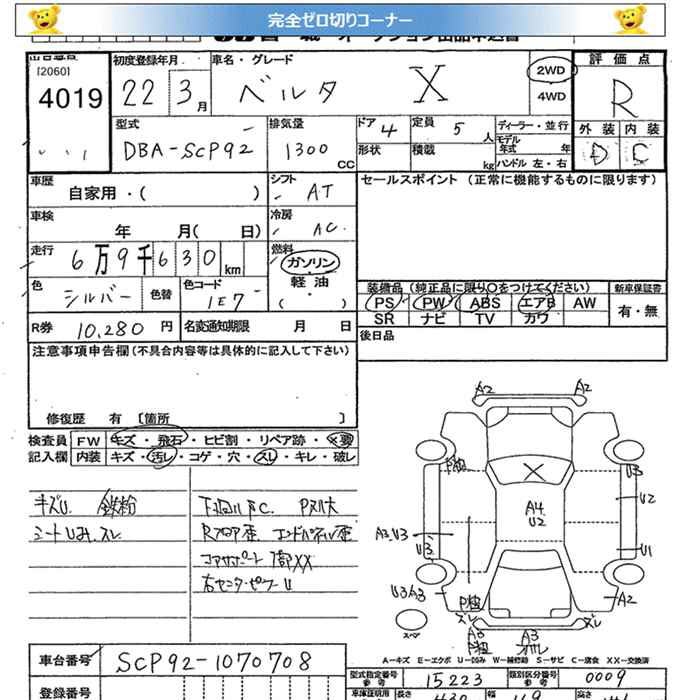 完全ゼロ切りコーナー
[2060]
4019
初度登録年月
22 3月
車名・グレード
ベルタ X
2WD
4WD
評価点
R
外装 内装
D C
型式
DBA-SCP92
排気量
1300 CC
ドア 4
定員 5 人
形状
積載 kg
ディーラー・並行
モデル年式 年
ハンドル 左・右
車歴
自家用・( )
シフト
AT
セールスポイント (正常に機能するものに限ります)
車検
年 月( 日)
冷房
AC
走行
6万9千630km
燃料
ガソリン
軽油
( ・ )
色
シルバー
色替
色コード
1E7
R券 10,280 円
名変通知期限 月 日
装備品 (純正品に限り○をつけてください)
新車保証書
PS PW ABS エアB AW
SR ナビ TV カワ
有・無
後日品
注意事項申告欄 (不具合内容等は具体的に記入して下さい)
修復歴 有 [箇所 ]
検査員記入欄
FW キズ・飛石・ヒビ割・リペア跡・×要
内装 キズ・汚レ・コゲ・穴・スレ・キレ・破レ
キズU. 鉄粉
シートUみ.スレ
下回リサビC.
Rフロア歪 エンドパネル歪
コアサポート
右センターピラーU
A2 A2
U3
U2
A4
U2
A3 U3
U3
U1
U3A3
A2
スペア
ズレ
ズレ
A3
A3
A-キズ E-エクボ U-凹み W-補修跡 S-サビ C-腐食 XX-交換済
車台番号
SCP92-1070708
登録番号
型式指定番号
参考
15223
類別区分番号
参考
0009
車庫証明用
長さ
430
幅
169
高さ